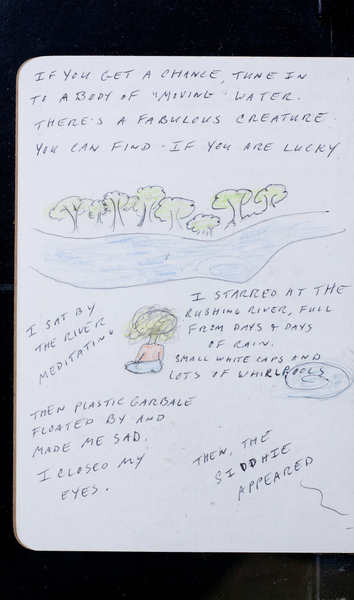 IF YOU GET A CHANCE, TUNE IN
TO A BODY OF "MOVING" WATER.
THERE'S A FABULOUS CREATURE
YOU CAN FIND - IF YOU ARE LUCKY
I SAT BY
THE RIVER
MEDITATING
I STARRED AT THE
RUSHING RIVER, FULL
FROM DAYS & DAYS
OF RAIN.
SMALL WHITE CAPS AND
LOTS OF WHIRLPOOLS
THEN PLASTIC GARBALE
FLOATED BY AND
MADE ME SAD.
I CLOSED MY
EYES.
THEN, THE
SIDDHIE
APPEARED